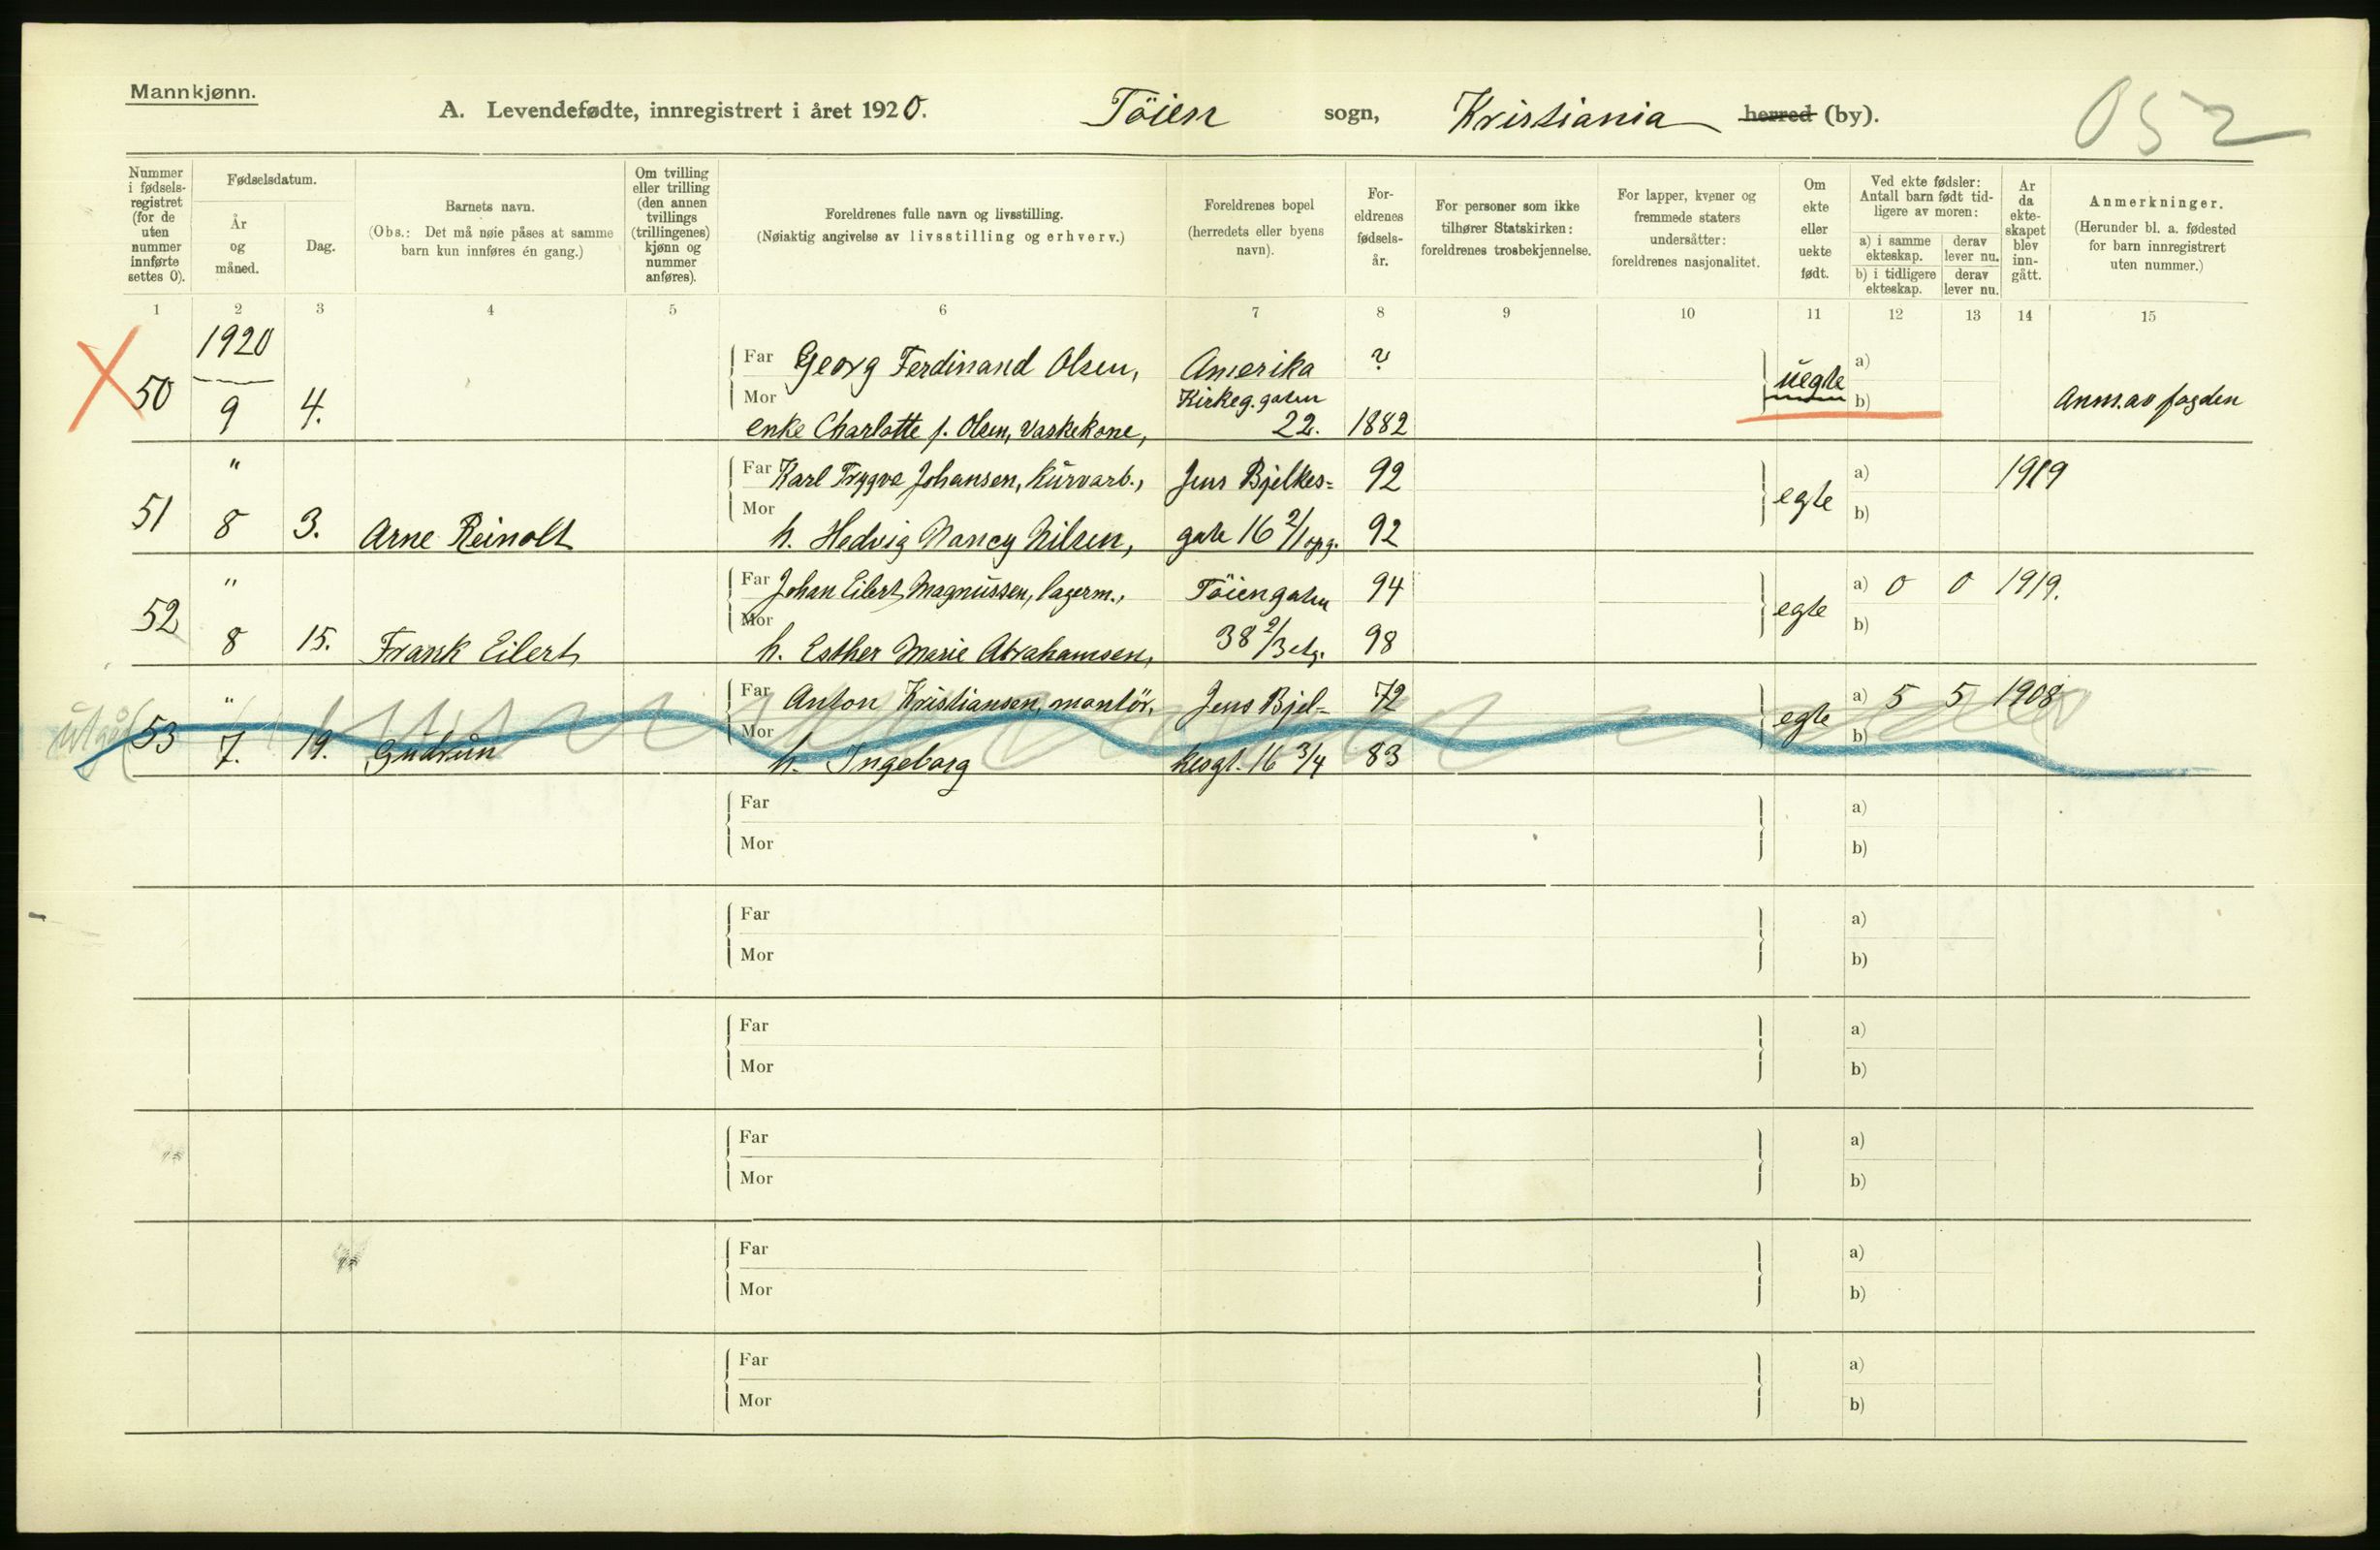 Mannkjønn.
A. Levendefødte, innregistrert i året 1920. Töien sogn, Kristiania herred (by).
052
Nummer i fødsels-registret (for de uten nummer innførte settes 0).
Fødselsdatum.
År og måned.
Dag.
Barnets navn.
(Obs.: Det må nøie påses at samme barn kun innføres én gang.)
Om tvilling eller trilling (den annen tvillings (trillingenes) kjønn og nummer anføres).
Foreldrenes fulle navn og livsstilling.
(Nøiaktig angivelse av livsstilling og erhverv.)
Foreldrenes bopel (herredets eller byens navn).
For-eldrenes fødsels-år.
For personer som ikke tilhører Statskirken: foreldrenes trosbekjennelse.
For lapper, kvener og fremmede staters undersåtter: foreldrenes nasjonalitet.
Om ekte eller uekte født.
Ved ekte fødsler: Antall barn født tid-ligere av moren:
a) i samme ekteskap.
derav lever nu.
b) i tidligere ekteskap.
derav lever nu.
År da ekte-skapet blev inn-gått.
Anmerkninger.
(Herunder bl. a. fødested for barn innregistrert uten nummer.)
1 2 3 4 5 6 7 8 9 10 11 12 13 14 15
1920
Far Georg Ferdinand Olsen, Amerika ? a)
50 9 4. Mor Kirkeg.gaten uegte b) Anm. av fogden
enke Charlotte f. Olsen, vaskekone, 22. 1882
" Far Karl Trygve Johansen, kurvarb., Jens Bjelkes= 92 a) 1919
51 8 3. Arne Reinolt Mor h. Hedvig Nancy Nilsen, gate 16 2/1 opg. 92 egte b)
" Far Johan Eilert Magnussen, lagerm., Töiengaten 94 a) 0 0 1919.
52 8 15. Frank Eilert Mor h. Esther Marie Abrahamsen, 38 2/3 etg. 98 egte b)
" Far Anton Kristiansen, montör, Jens Bjel- 72 a) 5 5 1908
utgår 53 7. 19. Gudrun Mor h. Ingeborg kesgt. 16 3/4 83 egte b)
Far a)
Mor b)
Far a)
Mor b)
Far a)
Mor b)
Far a)
Mor b)
Far a)
Mor b)
Far a)
Mor b)